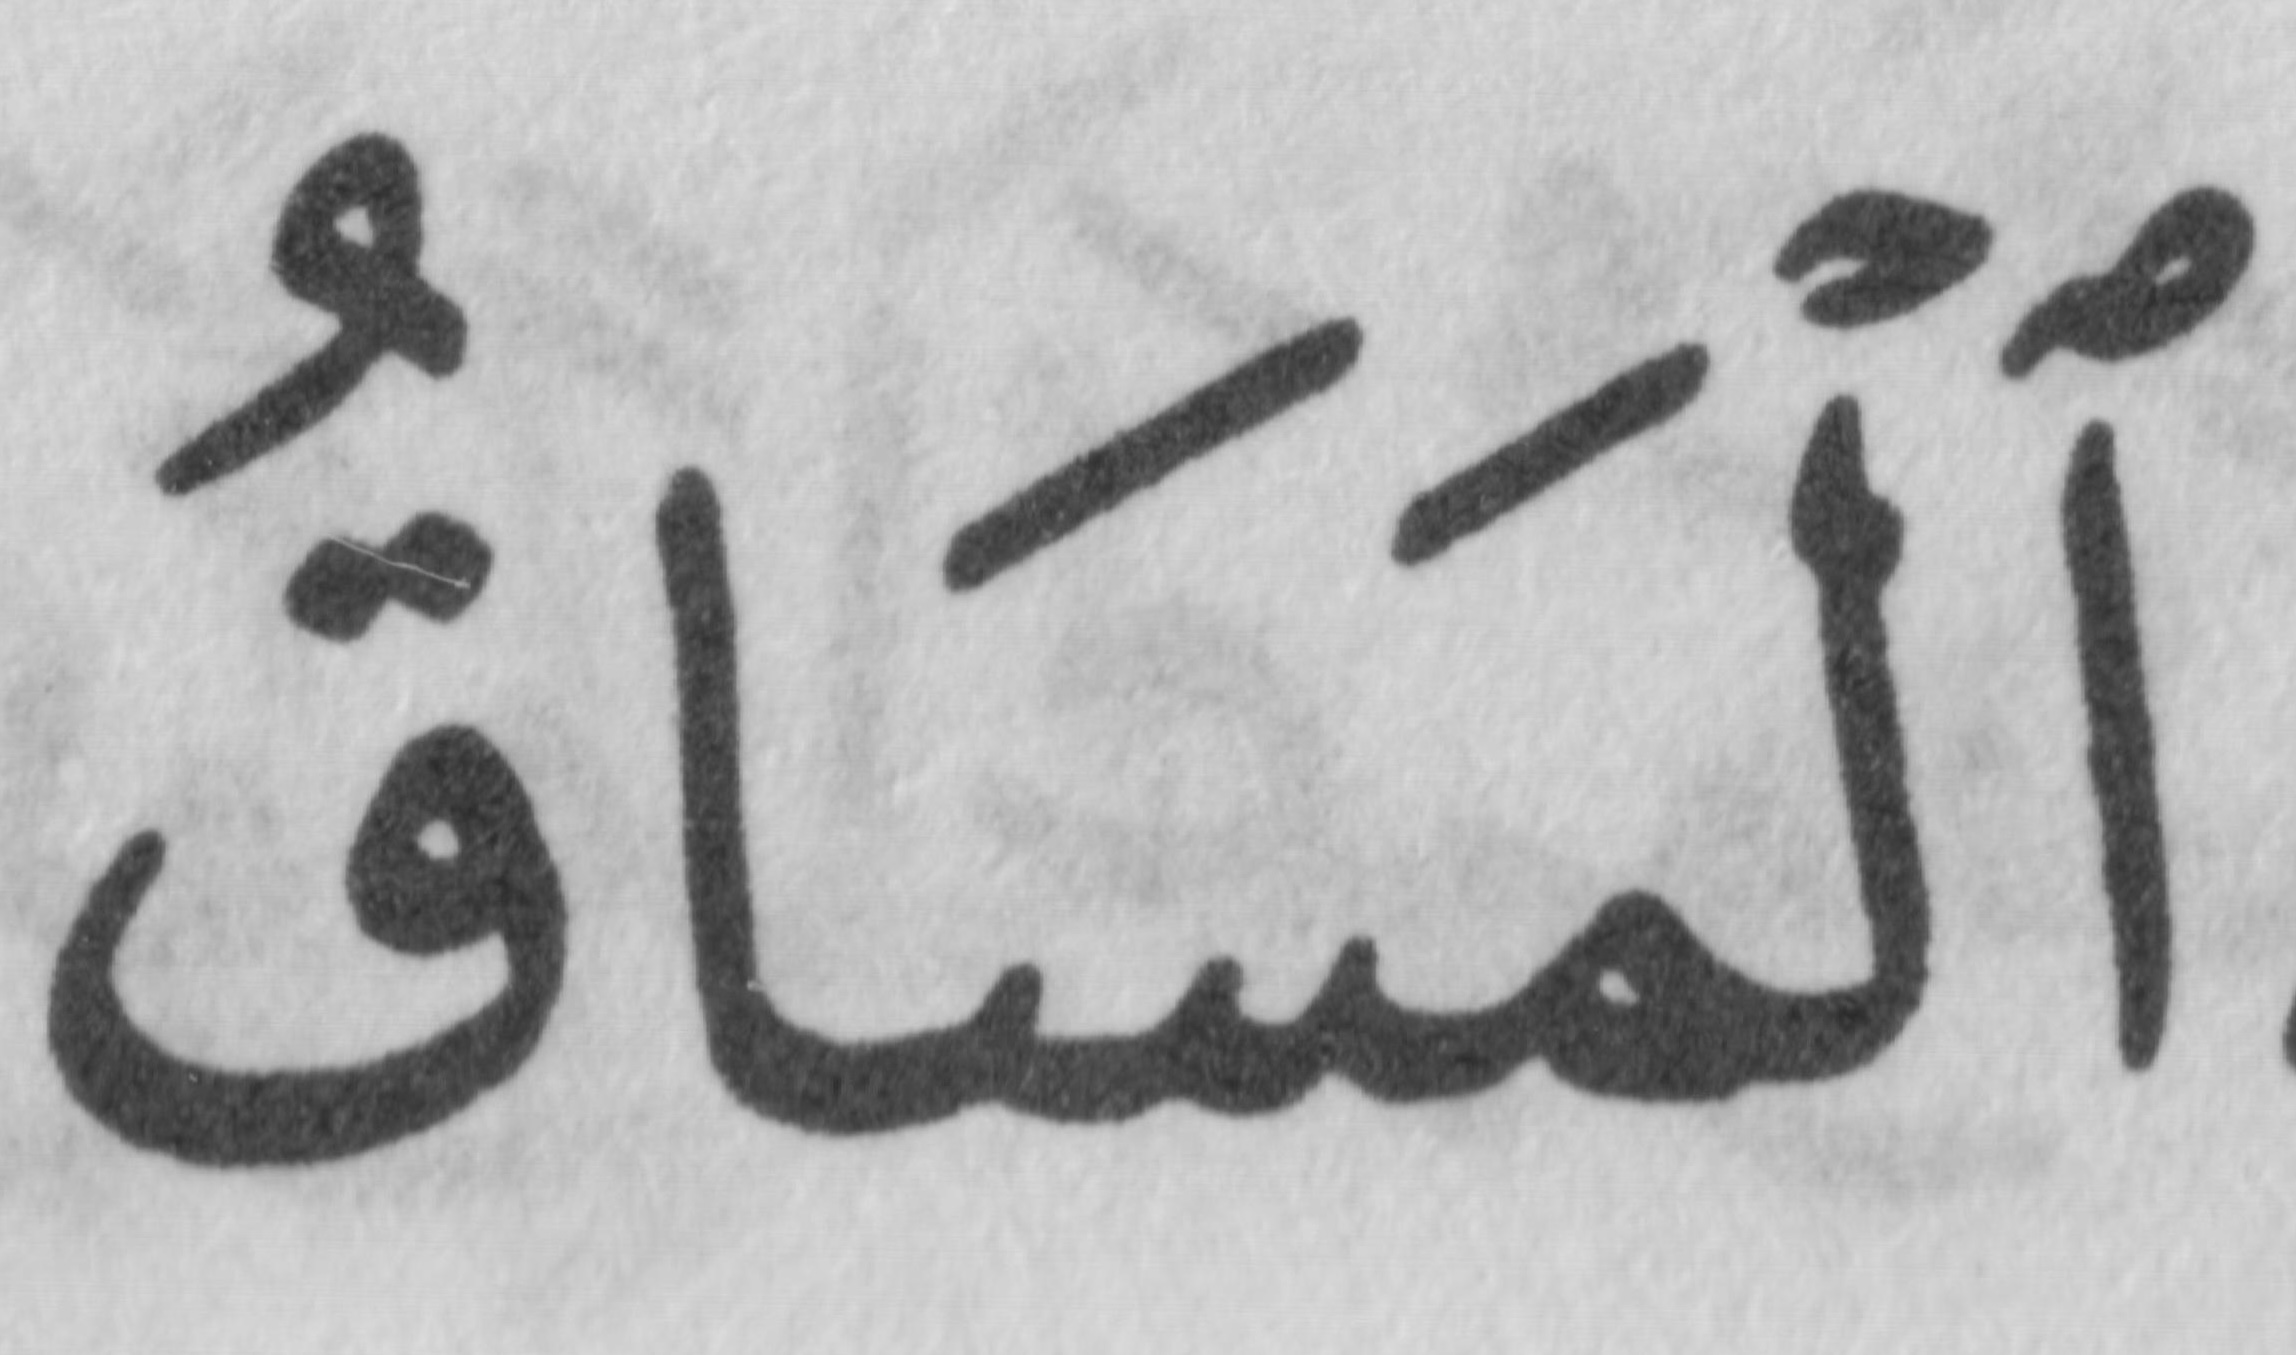 ٱلْمَسَاقُ